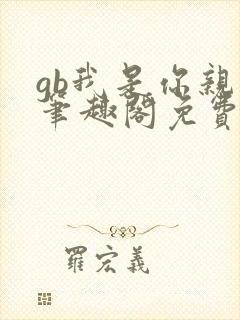 gb我是你親
筆趣閣免費
羅宏義